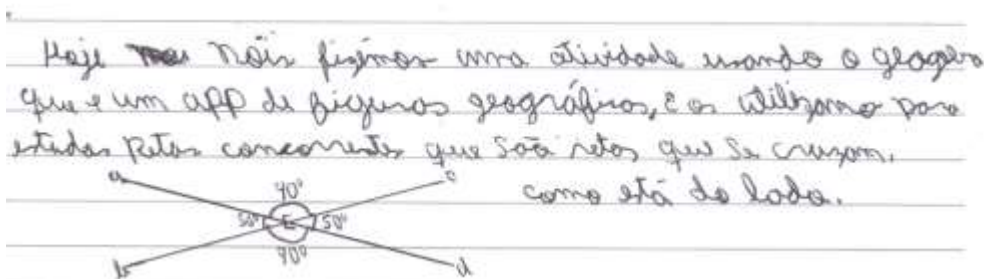 Hoje nóis fizémos uma atividade usando o geogebra
que e um app de figuras geográficas, e os utilizamo para
estudar retas concorrentes que são retas que se cruzam.
como está do lado.
a c
90°
50° E 50°
90°
b d